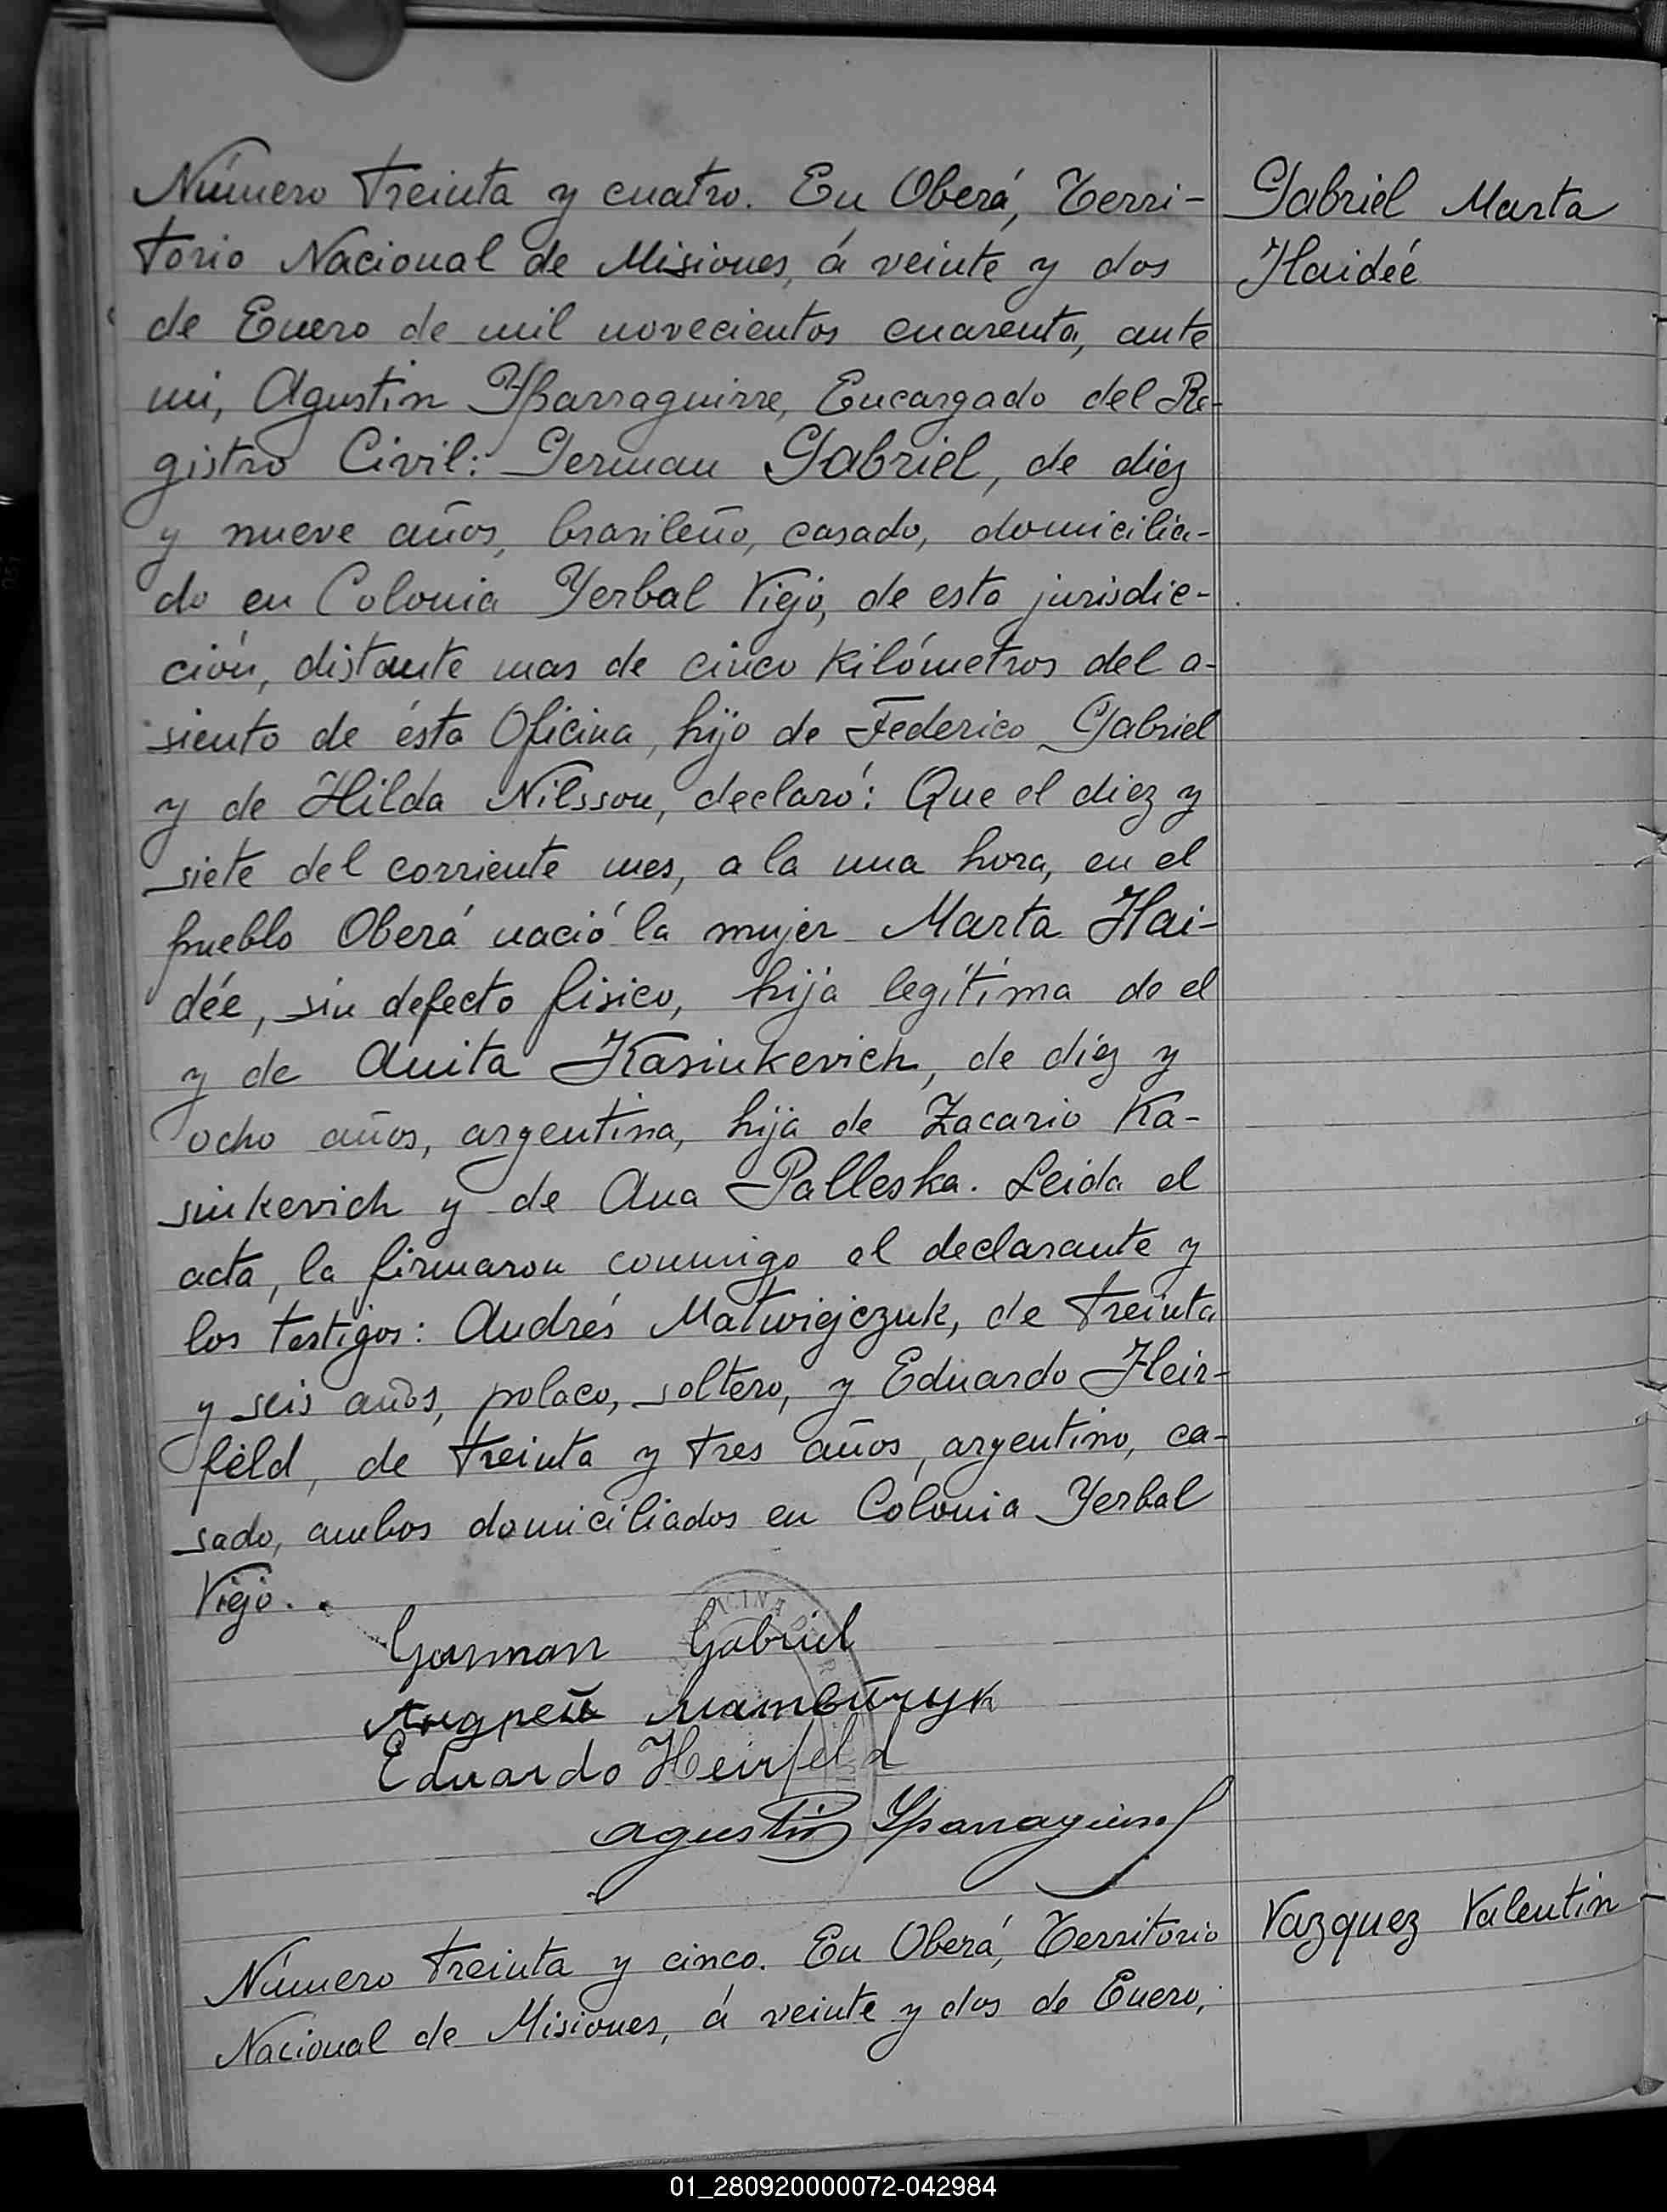 Número treinta y cuatro. En Oberá, Terri-
torio Nacional de Misiones, á veinte y dos
de Enero de mil novecientos cuarenta, ante
mi, Agustin Yparraguirre, Encargado del Re-
gistro Civil: German Gabriel, de diez
y nueve años, brasileño, casado, domicilia-
do en Colonia Yerbal Viejo, de esta jurisdic-
ción, distante mas de cinco kilómetros del a-
siento de ésta Oficina, hijo de Federico Gabriel
y de Hilda Nilsson, declaró: Que el diez y
siete del corriente mes, a la una hora, en el
pueblo Oberá nació la mujer Marta Hai-
dée, sin defecto fisico, hija legítima de el
y de Anita Kasinkevich, de diez y
ocho años, argentina, hija de Zacario Ka-
sinkevich y de Ana Palleska. Leida el
acta, la firmaron conmigo el declarante y
los testigos: Andrés Matwiejczuk, de treinta
y seis años, polaco, soltero, y Eduardo Heir-
feld, de treinta y tres años, argentino, ca-
sado, ambos domiciliados en Colonia Yerbal
Viejo.
German Gabriel
Eduardo Heirfeld
Agustin Yparraguirre
Gabriel Marta
Haideé
Número treinta y cinco. En Oberá, Territorio
Nacional de Misiones, á veinte y dos de Enero,
Vazquez Valentin
01_280920000072-042984